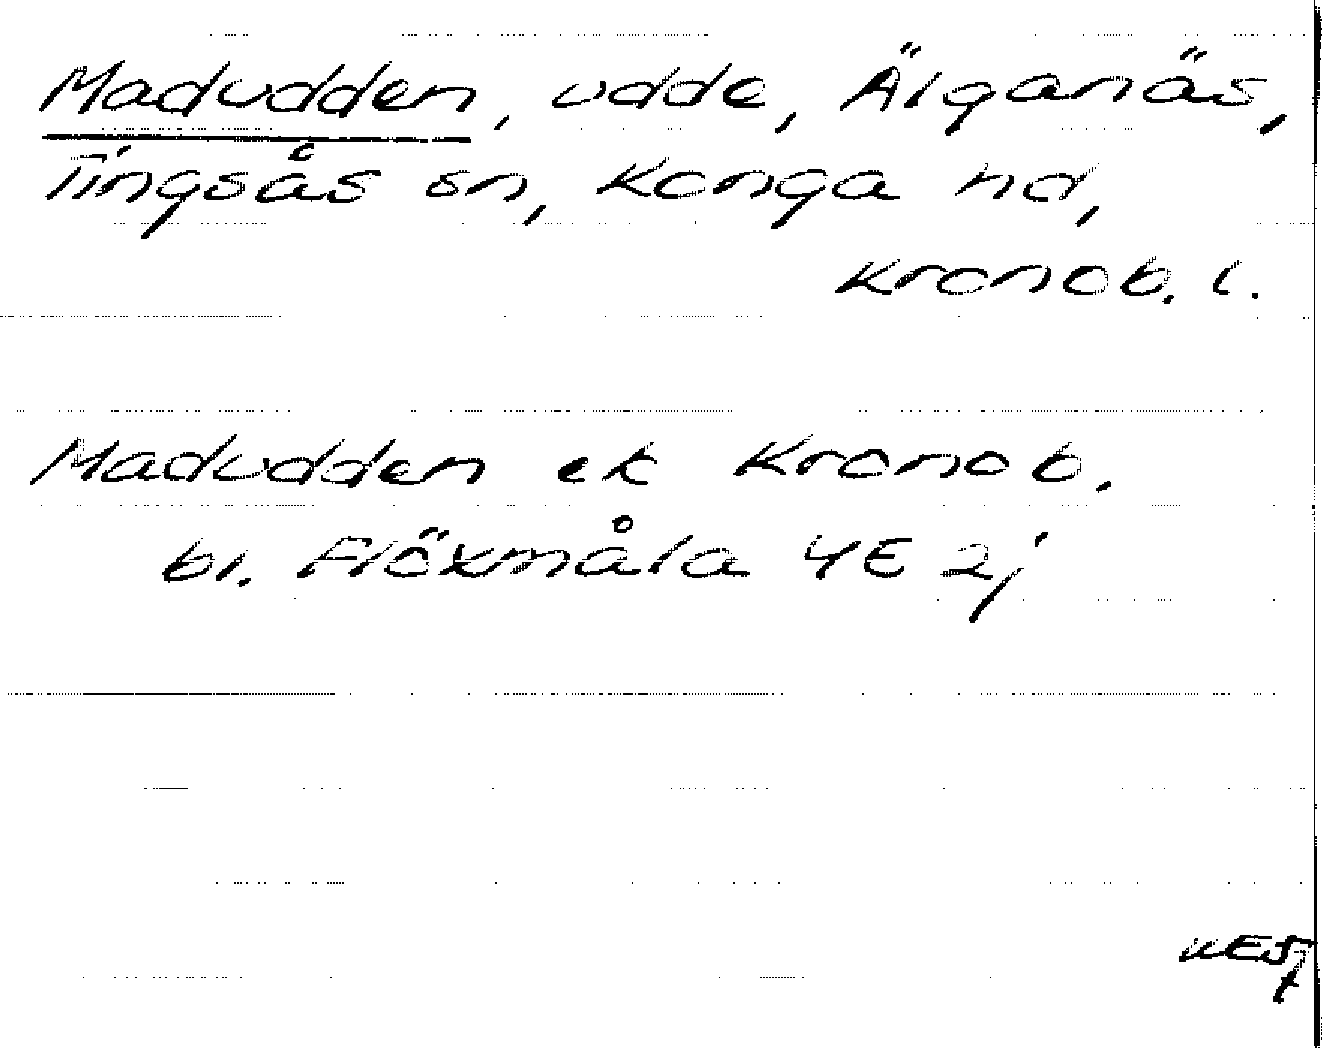 Madudden, udde, Älganäs,
Tingsås sn, Konga hd,
Kronob. l.
Madudden ek Kronob.
bl. Flöxmåla 4E 2j